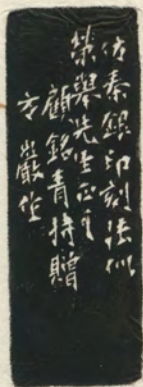 仿秦鉥印刻法似
榮舉先生正之
顧銘青持贈
方巖作